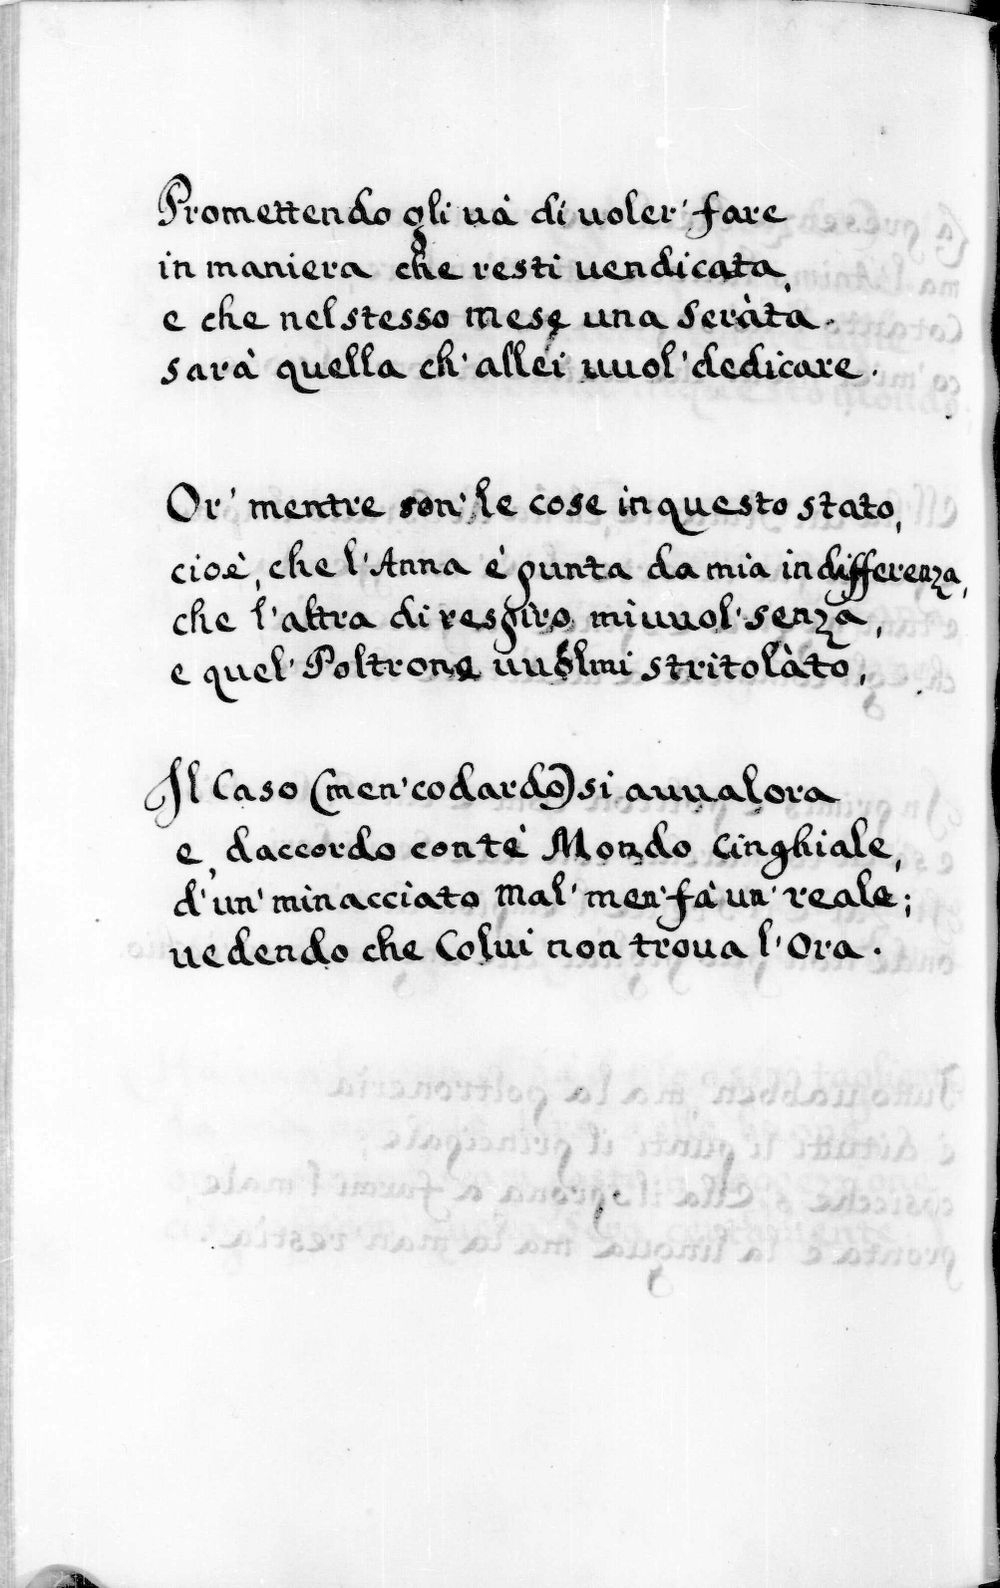 Promettendo gli uà di uoler' fare
in maniera che resti uendicata,
e che nel stesso mese una seràta.
sarà quella ch' allei uuol' dedicare.
Or' mentre son' le cose in questo stato,
cioè, che l'Anna è punta da mia indifferenza,
che l'altra di respiro mi uuol' senza,
e quel' Poltrone uuolmi stritolàto,
Il Caso (men' codardo) si auualora
e, daccordo con tè Mondo Cinghiale,
d'un' minacciato mal' men' fà un' reale;
uedendo che Colui non troua l'Ora.